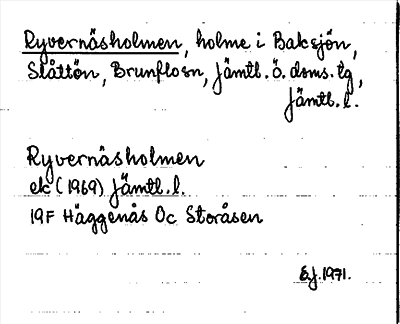 Ryvernäsholmen, holme i Baksjön,
Slåttön, Brunflosn, Jämtl. ö. doms. tg,
Jämtl. l.
Ryvernäsholmen
ek (1969) Jämtl. l.
19F Häggenås Oc Storåsen
EJ. 1971.